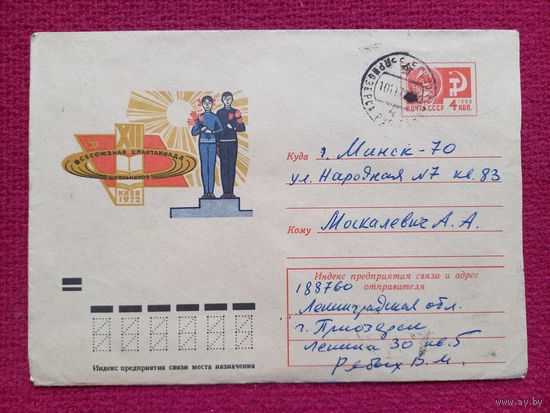 XII
ВСЕСОЮЗНАЯ СПАРТАКИАДА
ШКОЛЬНИКОВ
КИЕВ
1972
ПРИОЗЕРСК
1966
ПОЧТА СССР 4 КОП.
Куда г. Минск-70
ул. Народная №7 кв. 83
Кому Москалевич А. А.
Индекс предприятия связи и адрес
отправителя
188760
Ленинградская обл.
г. Приозерск
Ленина 30 кв. 5
В. М.
Индекс предприятия связи места назначения
ay.by